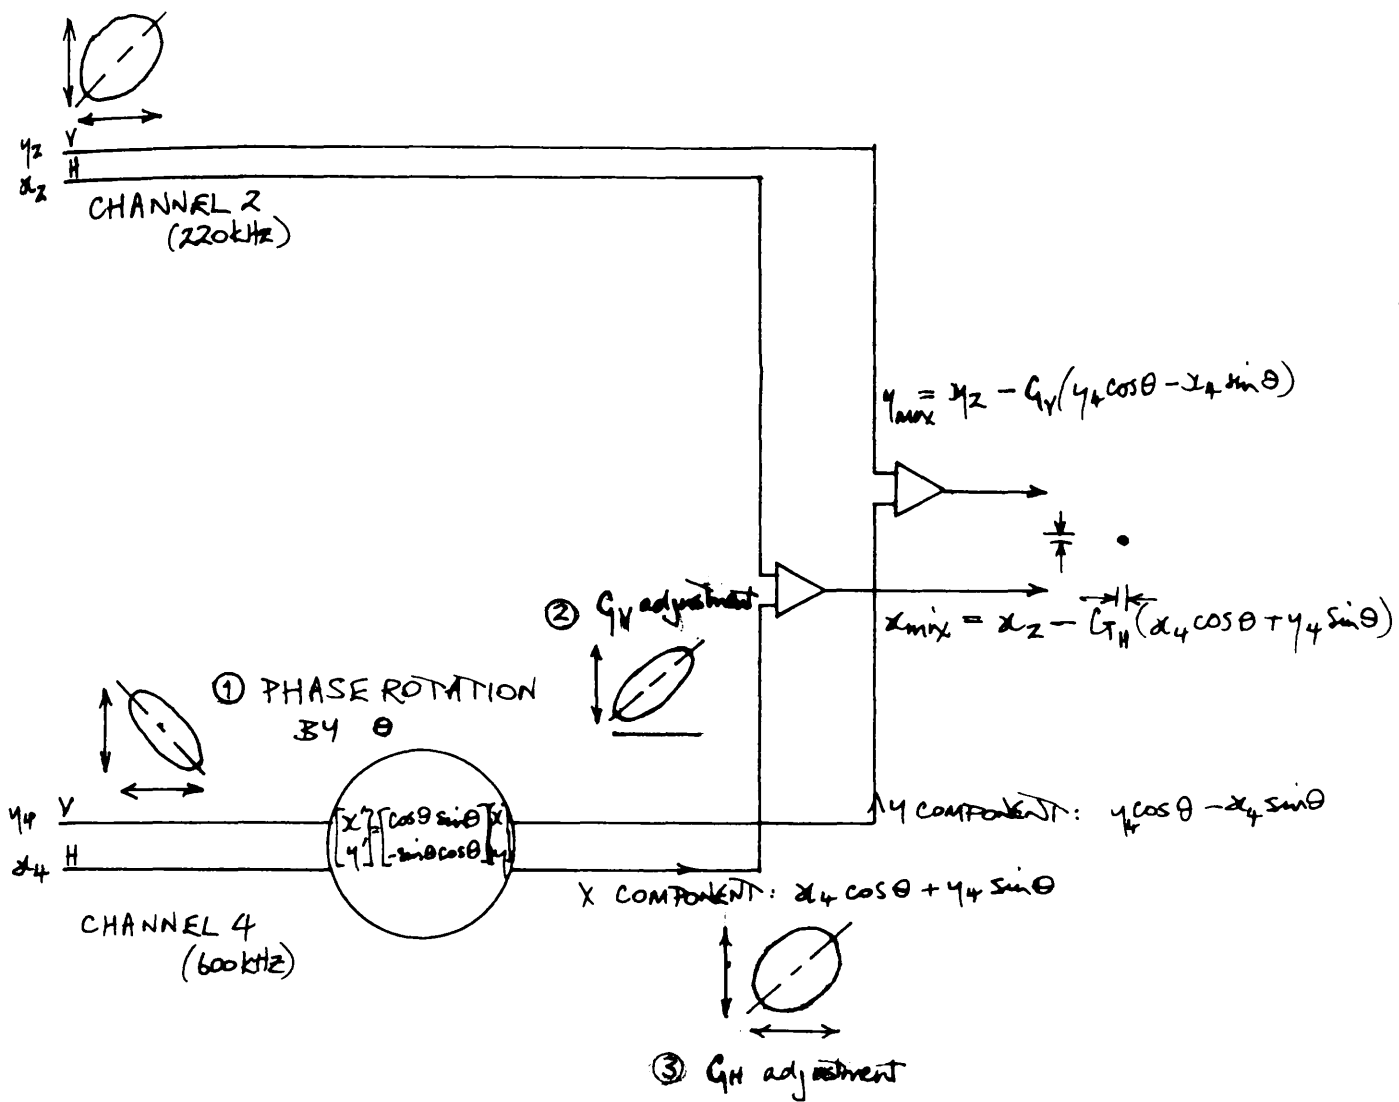 V
y₂
H
x₂
CHANNEL 2
(220kHz)
y_mix = y₂ - G_V(y₄ cosθ - x₄ sinθ)
② G_V adjustment
x_mix = x₂ - G_H(x₄ cosθ + y₄ sinθ)
① PHASE ROTATION
BY θ
y₄ V
[x' y'] = [cosθ sinθ -sinθ cosθ] [x y]
Y COMPONENT: y₄ cosθ - x₄ sinθ
x₄ H
X COMPONENT: x₄ cosθ + y₄ sinθ
CHANNEL 4
(600kHz)
③ G_H adjustment